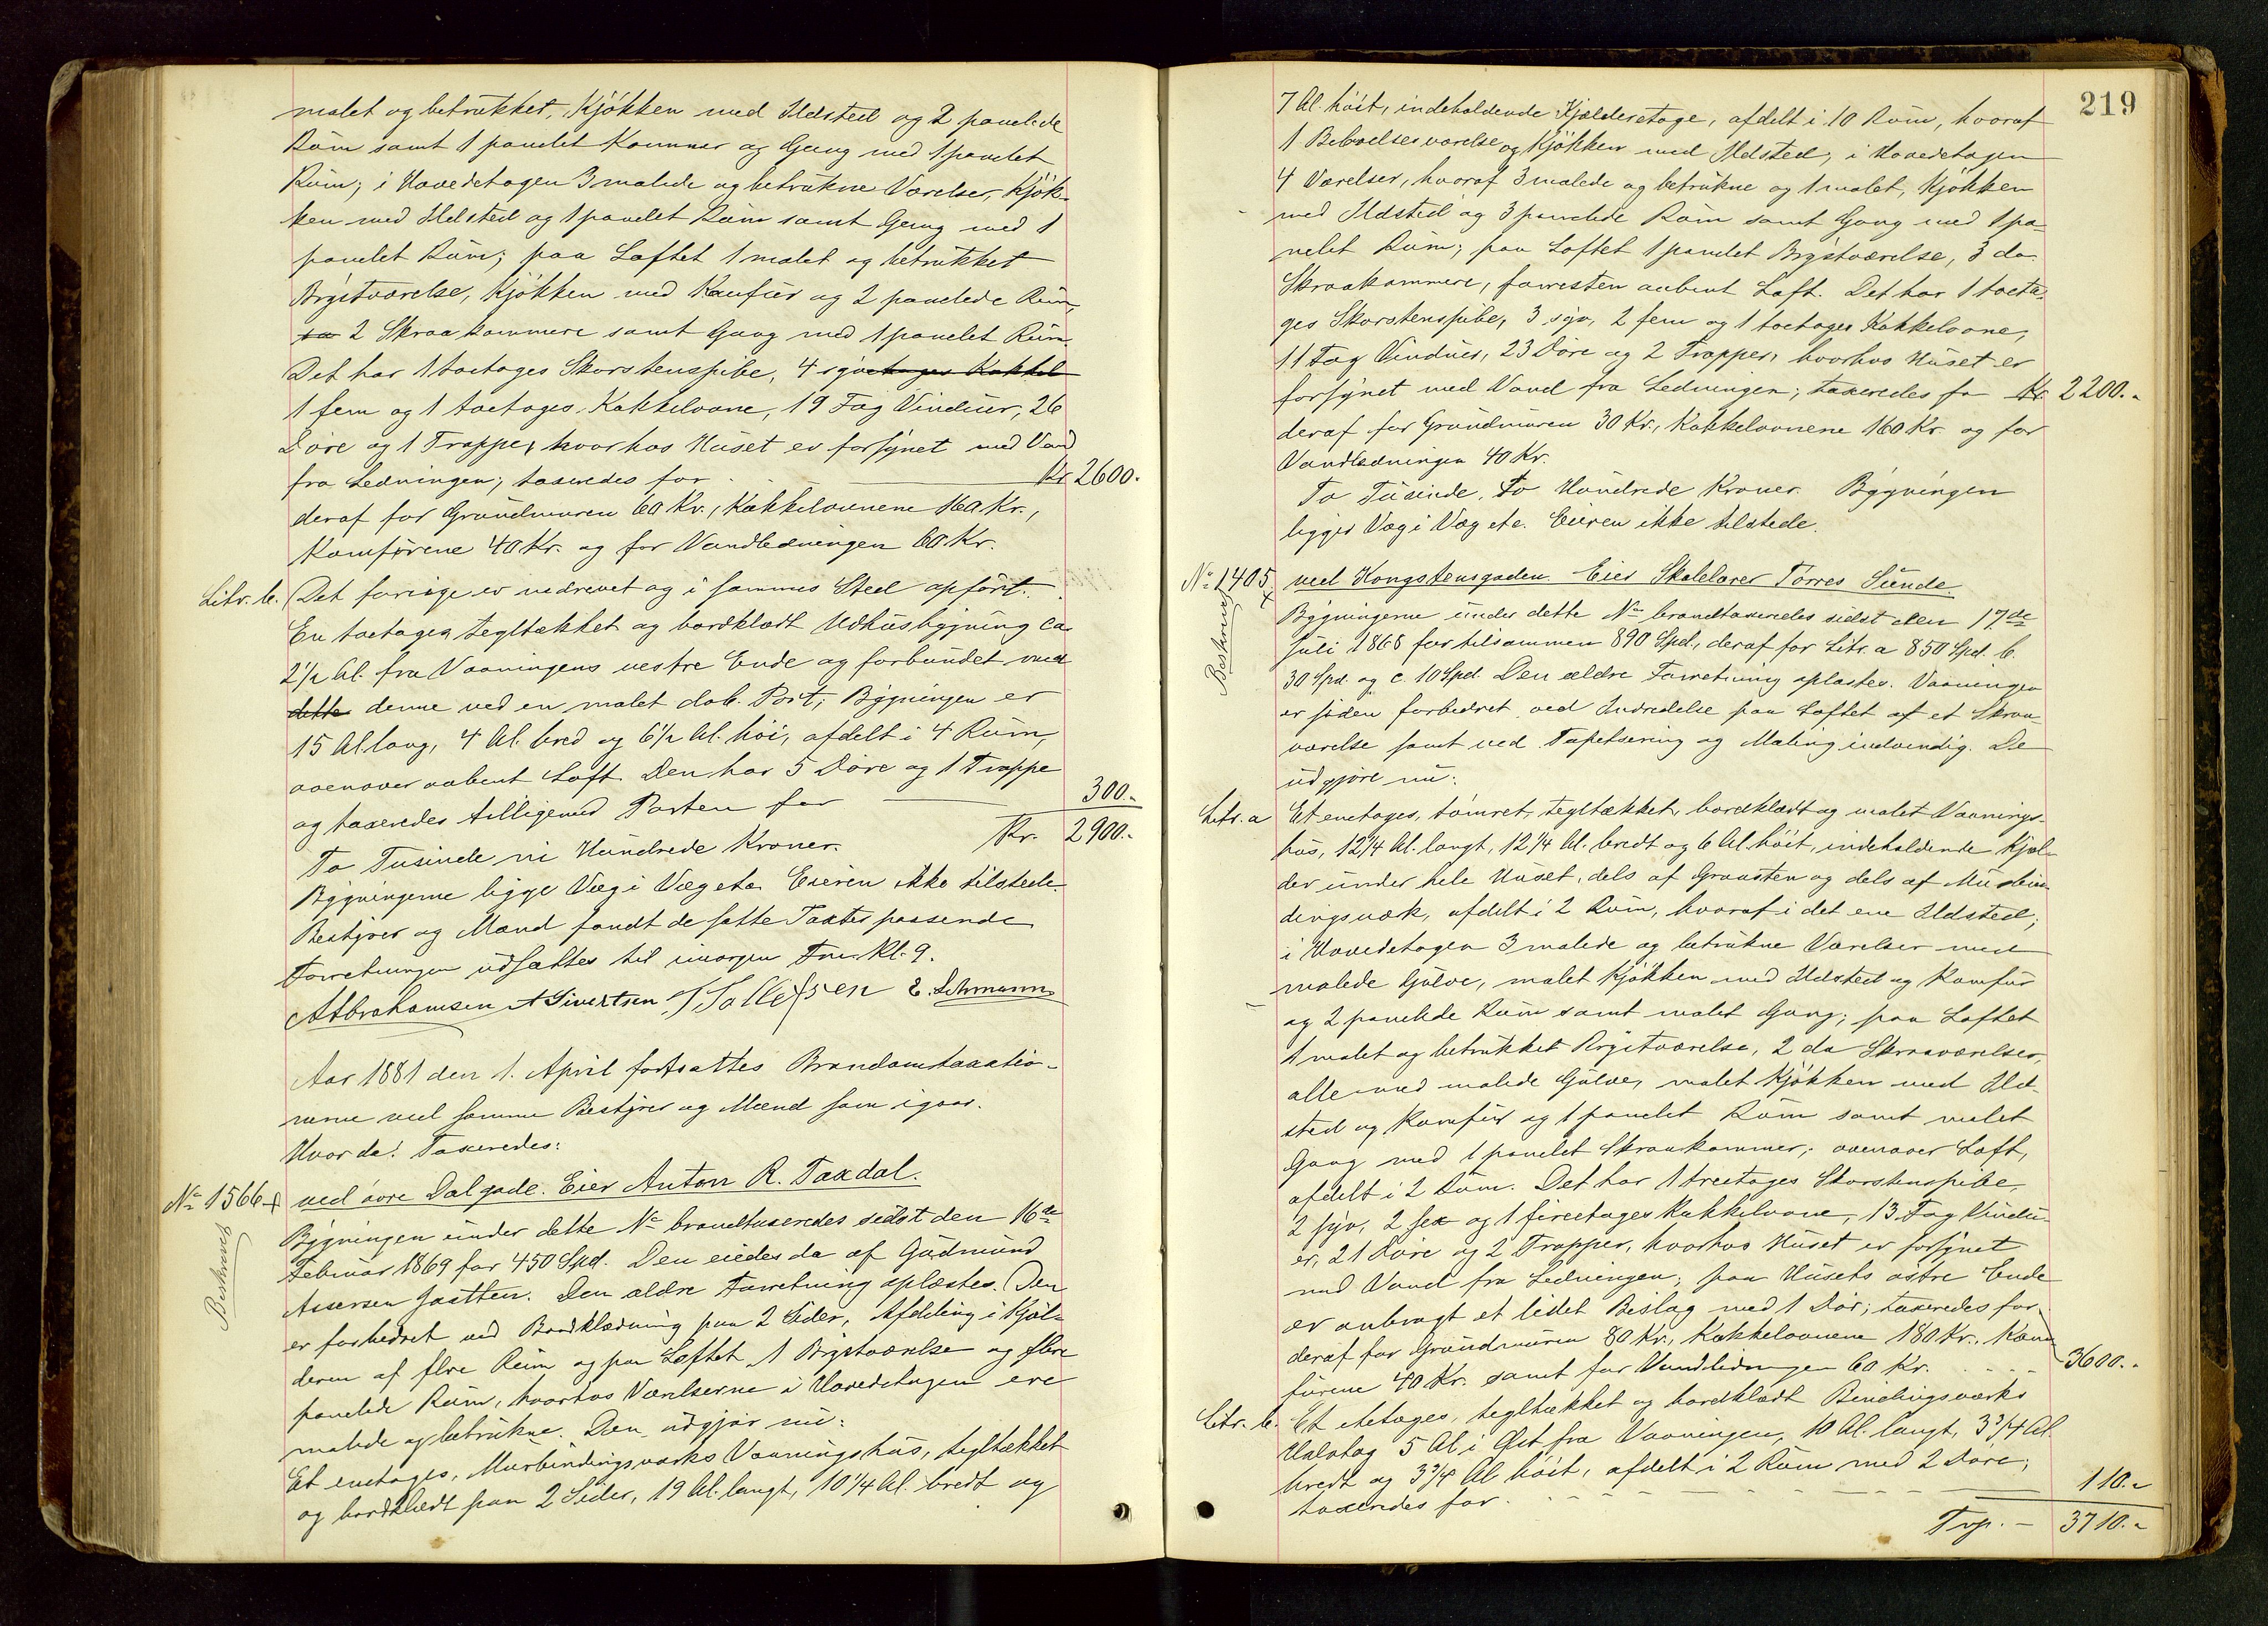 malet og betrukket, Kjökken med Ildsted og 2 panelede
Rum samt 1 panelet Kammer og Gang med 1 panelet
Rum; i Hovedetagen 3 malede og betrukne Værelser, Kjök-
ken med Ildsted og 1 panelet Rum samt Gang med 1
panelet Rum; paa Loftet 1 malet og betrukket
Brystværelse, Kjökken med Komfur og 2 panelede Rum,
2 Skraakammere samt Gang med 1 panelet Rum.
Det har 1 toetages Skorstenspibe, 4 syvetages Kakkel
1 fem og 1 toetages Kakkelovne, 19 Fag Vinduer, 26
Döre og 1 Trappe, hvorhos Huset er forsynet med Vand
fra Ledningen; taxeredes for Kr. 2600.
deraf for Grundmuren 60 Kr., Kakkelovnene 160 Kr.,
Komförene 40 Kr. og for Vandledningen 60 Kr.
Litr. b. Det forrige er nedrevet og i sammes Sted opfört.
En toetages tegltækket og bordklædt Udhusbygning ca
2 1/2 Al. fra Vaaningens vestre Ende og forbundet med
dette denne ved en malet dob. Port; Bygningen er
15 Al lang, 4 Al. bred og 6 1/2 Al. höi, afdelt i 4 Rum,
ovenover aabent Loft. Den har 5 Döre og 1 Trappe
og taxeredes tilligemed Porten for 300.-
To Tusinde ni Hundrede Kroner. Kr. 2900.-
Bygningerne ligge Væg i Væg etc. Eieren ikke tilstede.
Bestyrer og Mænd fandt de satte Taxter passende
Forretningen udsættes til imorgen Fm. Kl. 9.
A Abrahamsen A Sivertsen T Tollefsen E. Lehmann
Aar 1881 den 1. April fortsattes Brandomtaxatio-
nerne ved samme Bestyrer og Mænd som igaar.
Hvor da! Taxeredes:
No 1566 + ved övre Dalgade. Eier Anton R. Taxdal.
Beskrevet
Bygningen under dette No brandtaxeredes sidst den 16de
Februar 1869 for 450 Spd. Den eiedes da af Gudmund
Assersen Jaatten. Den ældre Forretning oplæstes. Den
er forbedret ved Bordklædning paa 2 Sider, Afdeling i Kjæl-
deren af flere Rum og paa Loftet 1 Brystværelse og flere
panelede Rum, hvorhos Værelserne i Hovedetagen ere
malede og betrukne. Den udgjör nu:
Et enetages, Murbindingsværks Vaaningshus, tegltækket
og bordklædt paa 2 Sider, 19 Al. langt, 10 1/4 Al. bredt og
219
7 Al. höit, indeholdende Kjælderetage, afdelt i 10 Rum, hvoraf
1 Beboelsesværelse og Kjökken med Ildsted, i Hovedetagen
4 Værelser, hvoraf 3 malede og betrukne og 1 malet, Kjökken
med Ildsted og 3 panelede Rum samt Gang med 1 pa-
nelet Rum; paa Loftet 1 panelet Brystværelse, 3 do
Skraakammere, forresten aabent Loft. Det har 1 toeta-
ges Skorstenspibe, 3 syv, 2 fem og 1 toetages Kakkelovne,
11 Fag Vinduer, 23 Döre og 2 Trapper, hvorhos Huset er
forsynet med Vand fra Ledningen; taxeredes for Kr. 2200.-
deraf for Grundmuren 30 Kr., Kakkelovnene 160 Kr. og for
Vandledningen 40 Kr.
To Tusinde, To Hundrede Kroner. Bygningen
ligger Væg i Væg etc. Eieren ikke tilstede.
No 1405 + ved Kongstensgaden. Eier Skolelærer Törres Sunde.
Beskrevet
Bygningerne under dette No brandtaxeredes sidst den 17de
Juli 1868 for tilsammen 890 Spd., deraf for Litr. a 850 Spd. b.
30 Spd. og c. 10 Spd. Den ældre Forretning oplæstes. Vaaningen
er siden forbedret ved Indredelse paa Loftet af et Skraa-
værelse samt ved Tapetsering og Maling indvendig. De
udgjöre nu:
Litr. a Et enetages, tömret, tegltækket, bordklædt og malet Vaanings-
hus, 12 1/4 Al. langt, 12 1/4 Al. bredt og 6 Al. höit, indeholdende Kjæl-
der under hele Huset, dels af Graasten og dels af Murbin-
dingsværk, afdelt i 2 Rum, hvoraf i det ene Ildsted;
i Hovedetagen 3 malede og betrukne Værelser med
malede Gulve, malet Kjökken med Ildsted og Komfur
og 2 panelede Rum samt malet Gang; paa Loftet
1 malet og betrukket Brystværelse, 2 do Skraaværelser,
alle med malede Gulve, malet Kjökken med Ild-
sted og Komfur og 1 panelet Rum samt malet
Gang med 1 panelet Skraakammer; ovenover Loft,
afdelt i 2 Rum. Det har 1 treetages Skorstenspibe,
2 syv, 2 sex og 1 fireetages Kakkelovne, 13 Fag Vindu-
er, 21 Döre og 2 Trapper, hvorhos Huset er forsynet
med Vand fra Ledningen; paa Husets östre Ende
er anbragt et lidet Bislag med 1 Dör; taxeredes for
deraf for Grundmuren 80 Kr., Kakkelovnene 180 Kr., Kom-
furene 40 Kr. samt for Vandledningen 60 Kr. 3600.-
Litr. b. Et etetages, tegltækket og bordklædt Bindingsværks
Halvtag 5 Al i Öst fra Vaaningen, 10 Al. langt, 3 3/4 Al.
bredt og 3 3/4 Al höit, afdelt i 2 Rum med 2 Döre;
taxeredes for 110.-
Trp. - 3710.-